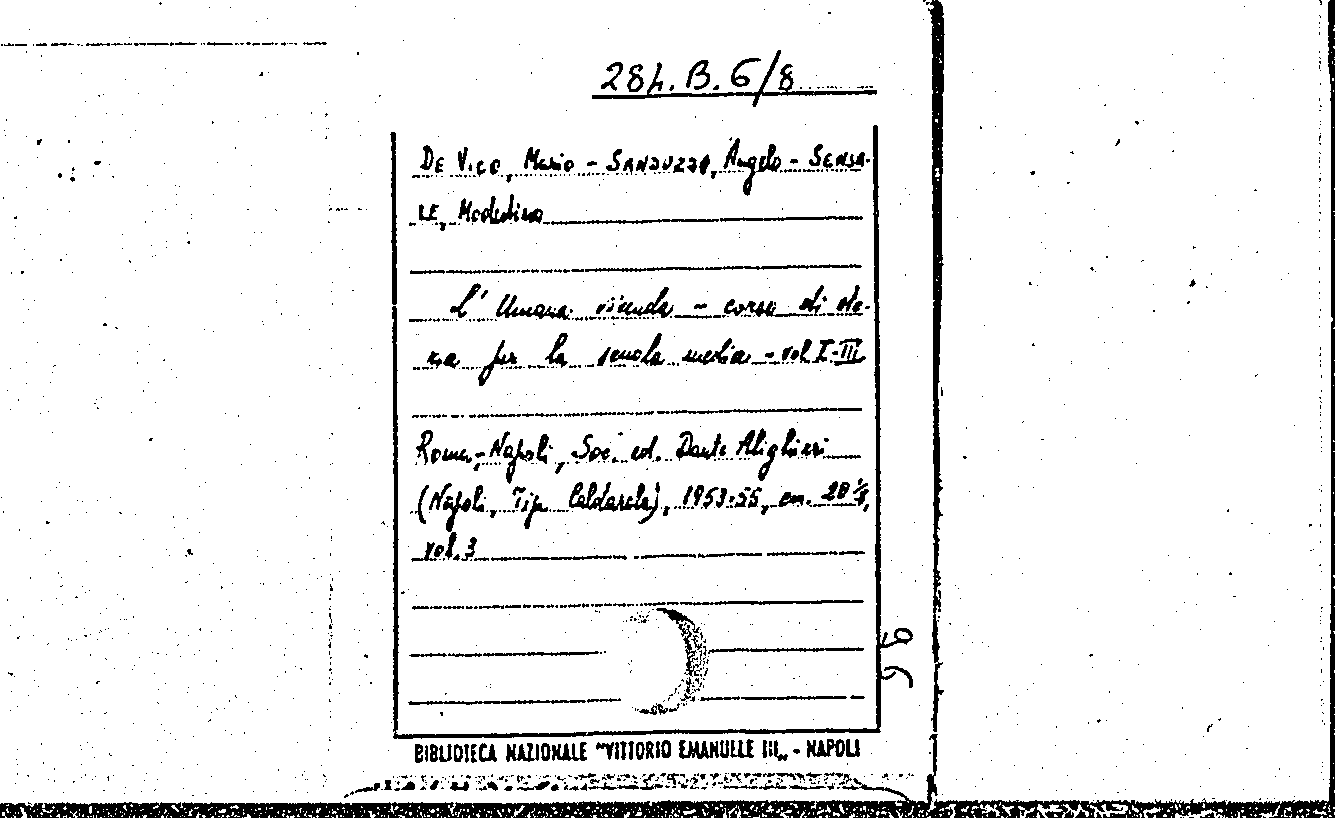 284.B.6/8
DE VICO, Mario - SANDUZZO, Angelo - SENSA-
LE, Modestino
L' Umana vicenda - corso di sto-
ria per la scuola media - vol I-III
Roma-Napoli, Soc. ed. Dante Alighieri
(Napoli, Tip. Caldarola), 1953-55, cm. 20 1/2,
vol. 3
BIBLIOTECA NAZIONALE "VITTORIO EMANUELE III„ - NAPOLI